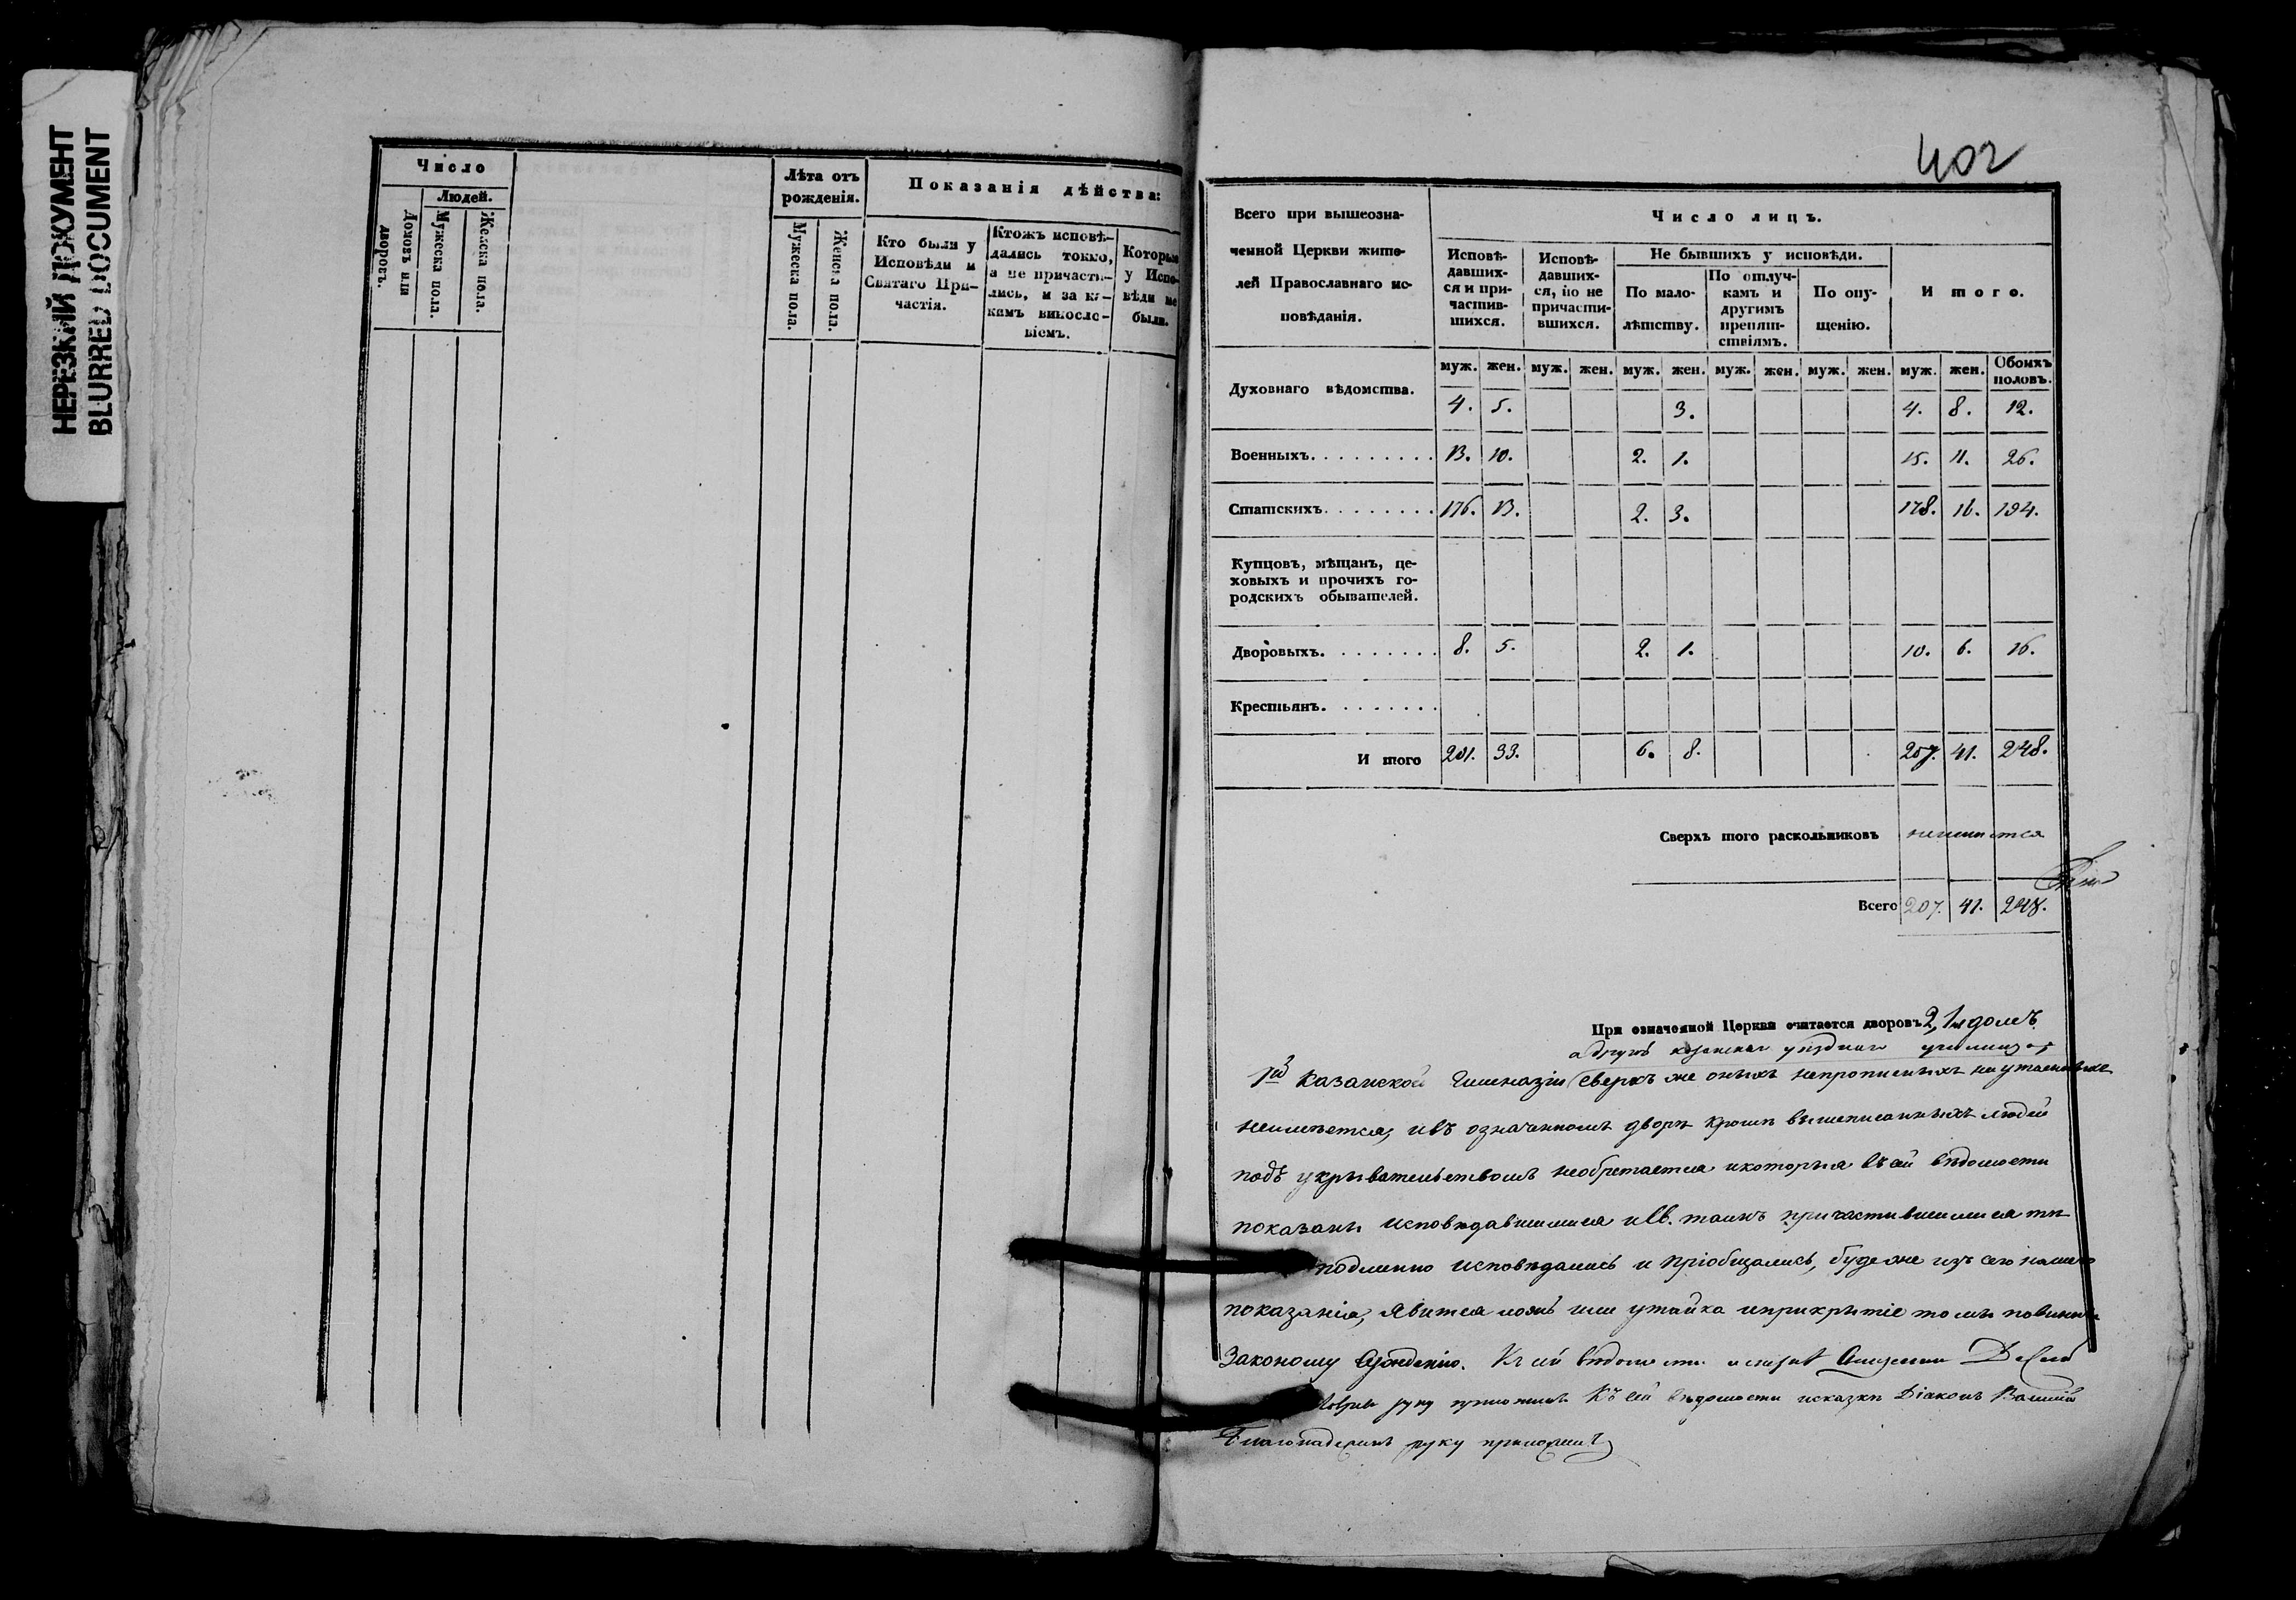 НЕРЕЗКИЙ ДОКУМЕНТ
BLURRED DOCUMENT
Число
Людей.
Домовъ или дворовъ.
Мужеска пола.
Женска пола.
Лѣта отъ рожденія.
Мужеска пола.
Женска пола.
Показанія дѣйства:
Кто были у
Исповѣди и
Святаго При-
частія.
Ктожъ исповѣ-
дались токмо,
а не причасти-
лись, и за ка-
кимъ винослo-
віемъ.
Которые
у Испо-
вѣди не
были.
402
Всего при вышеозна-
ченной Церкви жите-
лей Православнаго ис-
повѣданія.
Число лицъ.
Исповѣ-
давших-
ся и при-
частив-
шихся.
Исповѣ-
давших-
ся, но не
причасти-
вшихся.
Не бывшихъ у исповѣди.
По мало-
лѣтству.
По отлуч-
камъ и
другимъ
препят-
ствіямъ.
По опу-
щенію.
Итого.
муж. жен. муж. жен. муж. жен. муж. жен. муж. жен. муж. жен. Обоихъ половъ.
Духовнаго вѣдомства. 4. 5. 3. 4. 8. 12.
Военныхъ. 13. 10. 2. 1. 15. 11. 26.
Статскихъ. 176. 13. 2. 3. 178. 16. 194.
Купцовъ, мѣщанъ, це-
ховыхъ и прочихъ го-
родскихъ обывателей.
Дворовыхъ. 8. 5. 2. 1. 10. 6. 16.
Крестьянъ.
И того 201. 33. 6. 8. 207. 41. 248.
Сверхъ того раскольниковъ неимѣется
Всего 207. 41. 248.
При означенной Церкви считается дворовъ 2, 1й домъ
а другой казанскаго уѣзднаго училища
1й Казанской Гимназіи сверхъ же оныхъ непрописныхъ неутаенныхъ
неимѣется, ивъ означенномъ дворѣ кромѣ вышеписанныхъ людей
подъ укрывательствомъ необретается икоторыя въсей вѣдомости
показаны исповѣдавшимися иСв. таинъ причастившимися тѣ
подлинно исповѣдались и пріобщались, буде же изъ сего нашего
показанія, явится ложь или утайка иприкрытіе томъ повинны
Законому сужденію. Къ сей вѣдомости
руку приложилъ Къ сей вѣдомости исказкѣ Діаконъ Василій
Благонадежинъ руку приложилъ